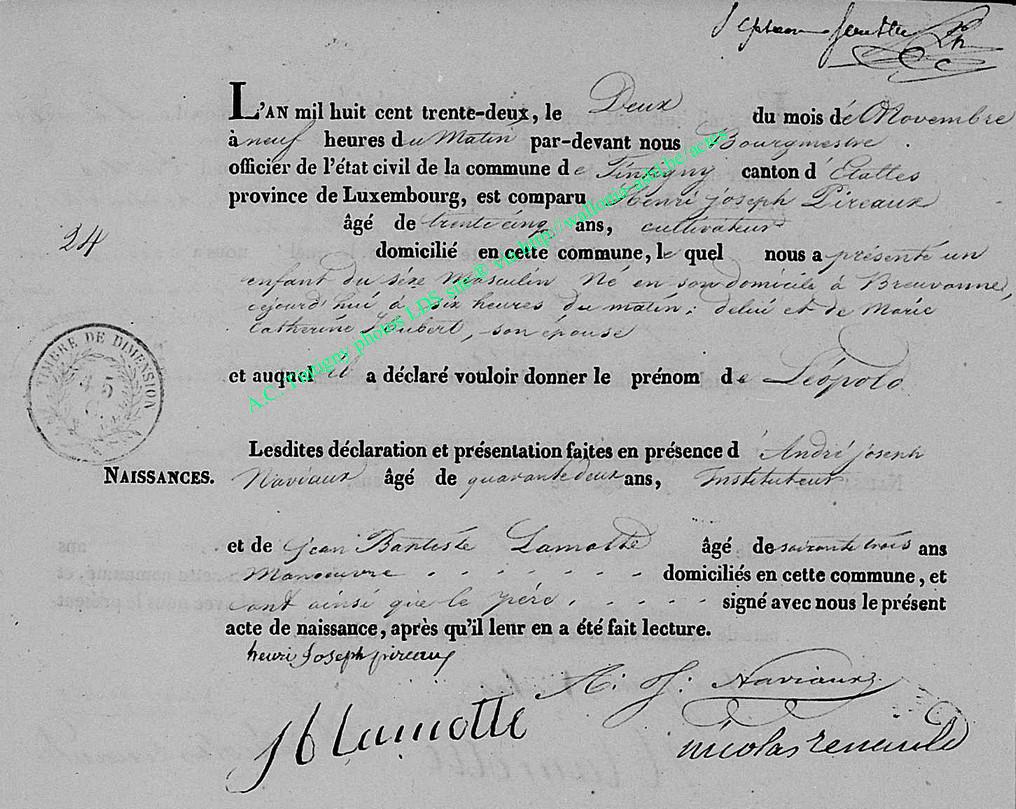 Septième feuillet
L'AN mil huit cent trente-deux, le Deux du mois de Novembre
à neuf heures du Matin par-devant nous Bourgmestre
officier de l'état civil de la commune de Tintigny canton d'Etalles
province de Luxembourg, est comparu Henri joseph Pireaux
âgé de trente cinq ans, cultivateur
24
domicilié en cette commune, le quel nous a présenté un
enfant du sexe Masculin Né en son domicile à Breuvanne,
cejourd'hui à six heures du matin; de lui et de Marie
Catherine Hubert, son épouse
et auquel il a déclaré vouloir donner le prénom de Léopold
TIMBRE DE DIMENSION
45
A.C. Tintigny photos LDS site© via http://wallonia-asbl.be/actes
Lesdites déclaration et présentation faites en présence d'André joseph
NAISSANCES. Naviaux âgé de quarante deux ans, Instituteur
et de Jean Baptiste Lamotte âgé de soixante trois ans
Manoeuvre domiciliés en cette commune, et
ont ainsi que le père, signé avec nous le présent
acte de naissance, après qu'il leur en a été fait lecture.
henri Joseph pireaux
A. J. Naviaux
Lamotte
nicolas